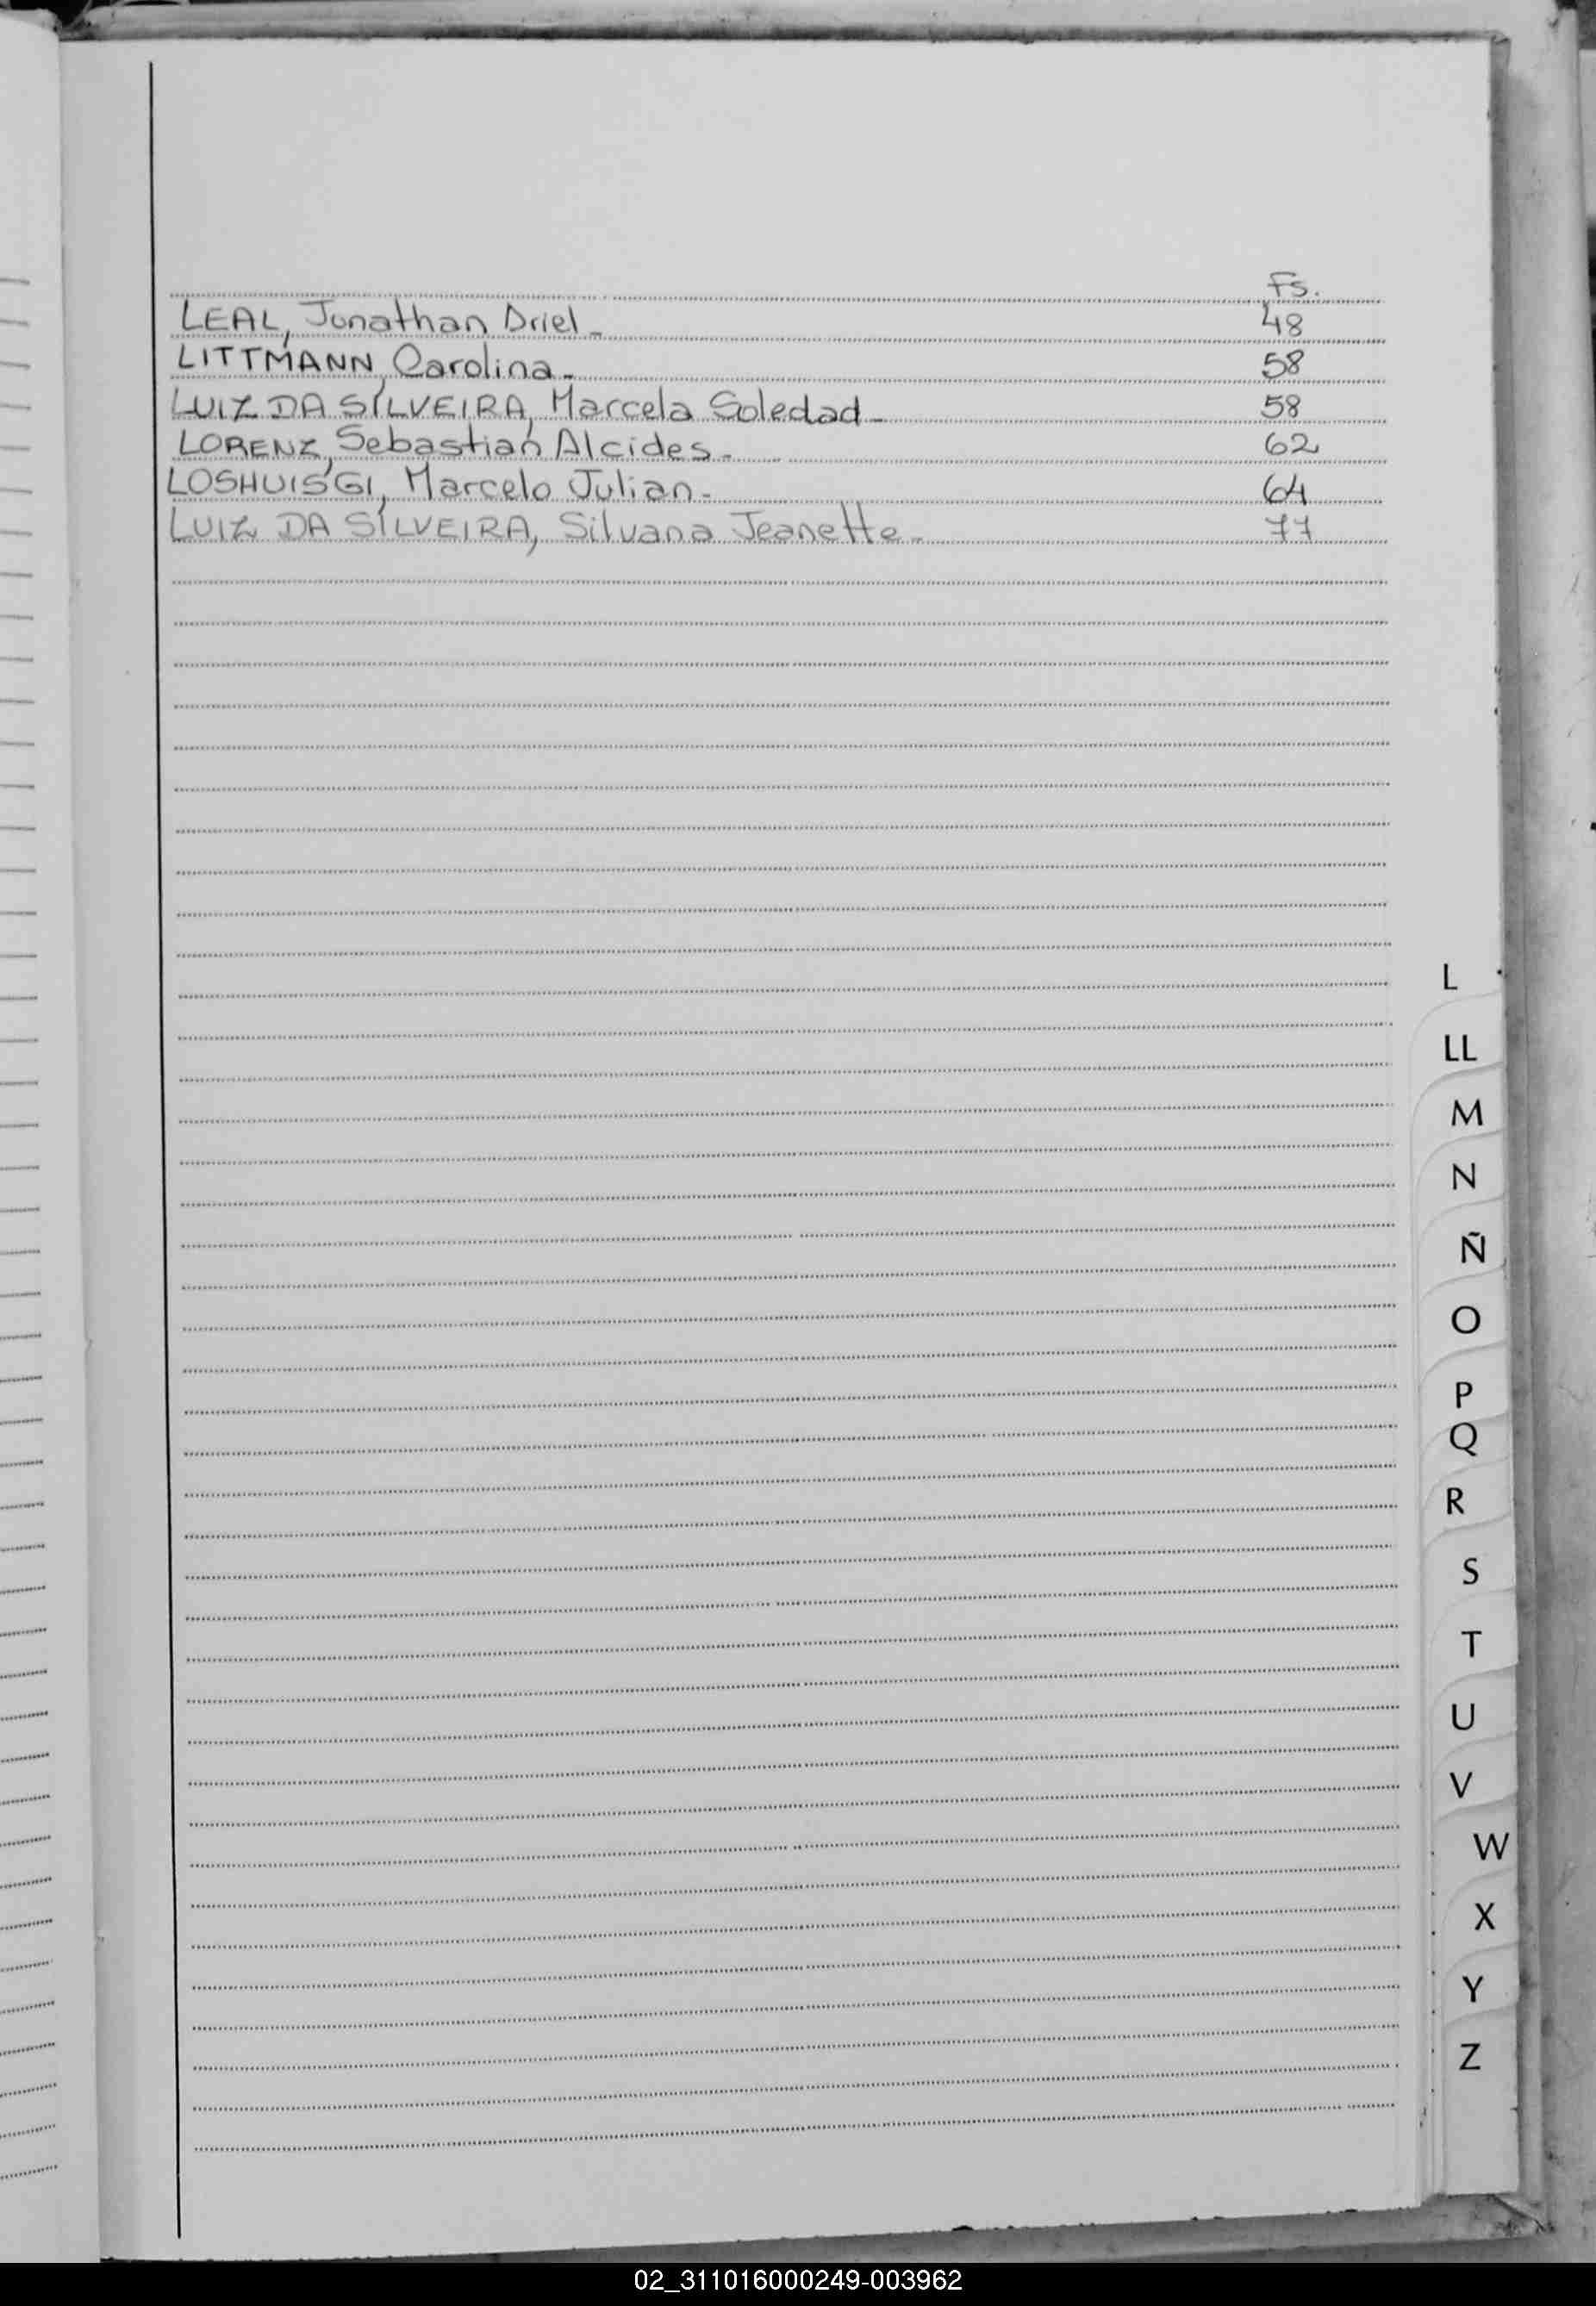 Fs.
LEAL, Jonathan Driel - 48
LITTMANN, Carolina - 58
LUIZ DA SILVEIRA, Marcela Soledad - 58
LORENZ, Sebastian Alcides - 62
LOSHUISGI, Marcelo Julian - 64
LUIZ DA SILVEIRA, Silvana Jeanette - 77
L
LL
M
N
Ñ
O
P
Q
R
S
T
U
V
W
X
Y
Z
02_311016000249-003962